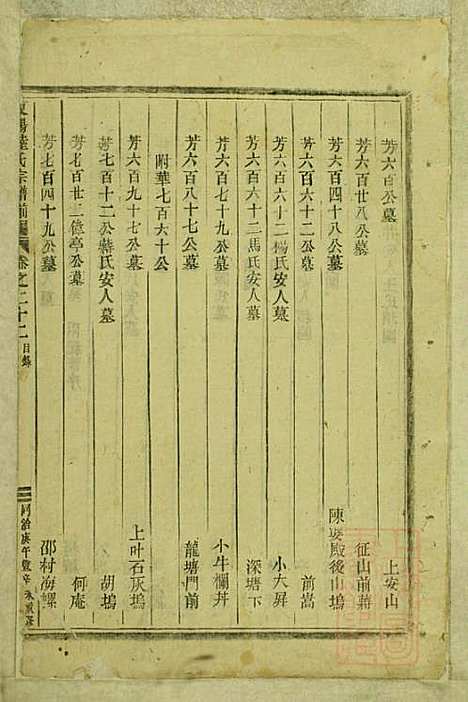 芳六百公墓 上安山
芳六百廿八公墓 征山前蔣
芳六百四十八公墓 陳婆殿後山塢
芳六百六十二公墓 前嵩
芳六百六十二楊氏安人墓 小大昇
芳六百六十二馬氏安人墓 深塘下
芳六百七十九公墓 小牛欄丼
芳六百八十七公墓 龍塘門前
附華七百六十公
芳六百九十七公墓 上叶石灰塢
芳七百十二公蔣氏安人墓 胡塢
芳七百廿二億亭公墓 何庵
芳七百四十九公墓 邵村海螺
氏宗譜前編 卷之二十二 目錄 同治庚午